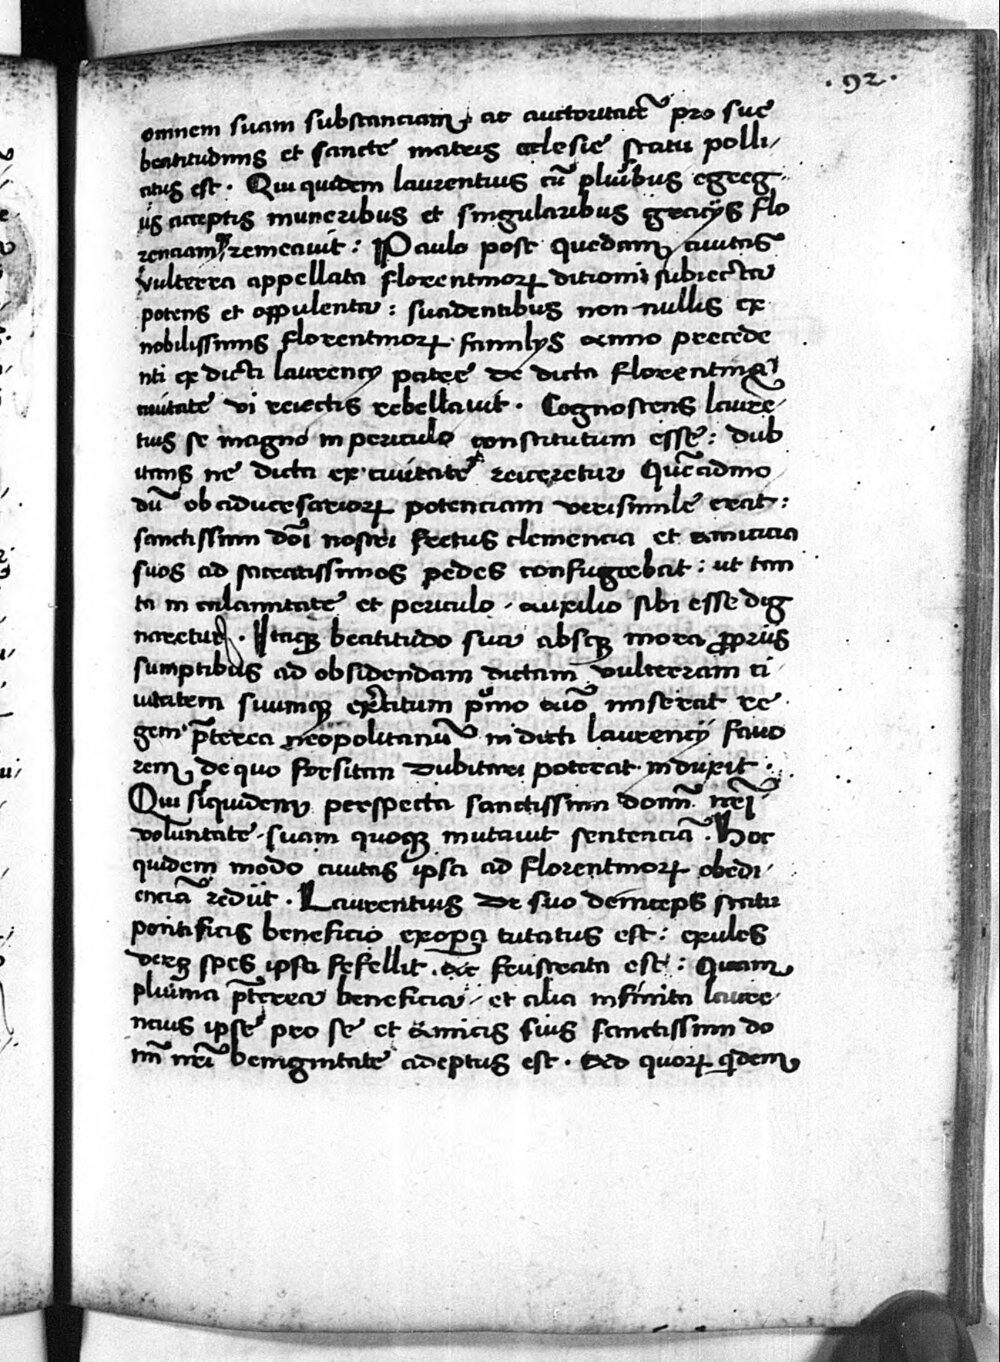 . 92 .
omnem suam substanciam ac auctoritatē pro sue
beatitudinis et sancte matris eclesie statu polli,
citus est . Qui quidem laurentius cū pluribus egreg
iis acceptis muneribus et singularibus graciis flo
renciam remeavit : Paulo post quedam civitas
vulterra appellata florentinoꝝ ditioni subiecta
potens et oppulenta : suadentibus non nullis ex
nobilissimis florentinoꝝ familiis anno precede
nti ex dicti laurencij patre de dicta florentina
civitate vi reiectis rebellavit . Cognoscens laurē
tius se magno in periculo constitutum esse : dub
itans ne dicta ex civitate reiceretur Quēadmo
dū ob aduersarioꝝ potenciam verisimile erat :
sanctissim dōī nostri fretus clemencia et amicicia
suos ad sacratissimos pedes confugiebat : ut tan
ta in calamitate et periculo . auxilio sibi esse dig
naretur . Itaqꝫ beatitudo sua absqꝫ mora propriis
sumptibus ad obsidendam dictam vulterram ci
vitatem suumqꝫ exercitum pͥmo quō miserat re
gem p̄terea neopolitanū in dicti laurencij favo
rem de quo forsitan dubitari poterat induxit .
Qui siquidem perspecta sanctissim domī nrī
voluntate suam quoqꝫ mutavit sentenciā . Hoc
quidem modo civitas ipsa ad florentinoꝝ obedi,
enciā rediit . Laurentius de suo deinceps statu
pontificis beneficio ex opere tutatus est : exules
vero spes ipsa fefellit . ac frustrata est : Quam
plurima p̄terea beneficia et alia infinita laure
ncius ipse pro se et amicis suis sanctissim do
mī nrī benignitate adeptus est . Sed quoꝝ qͥdem